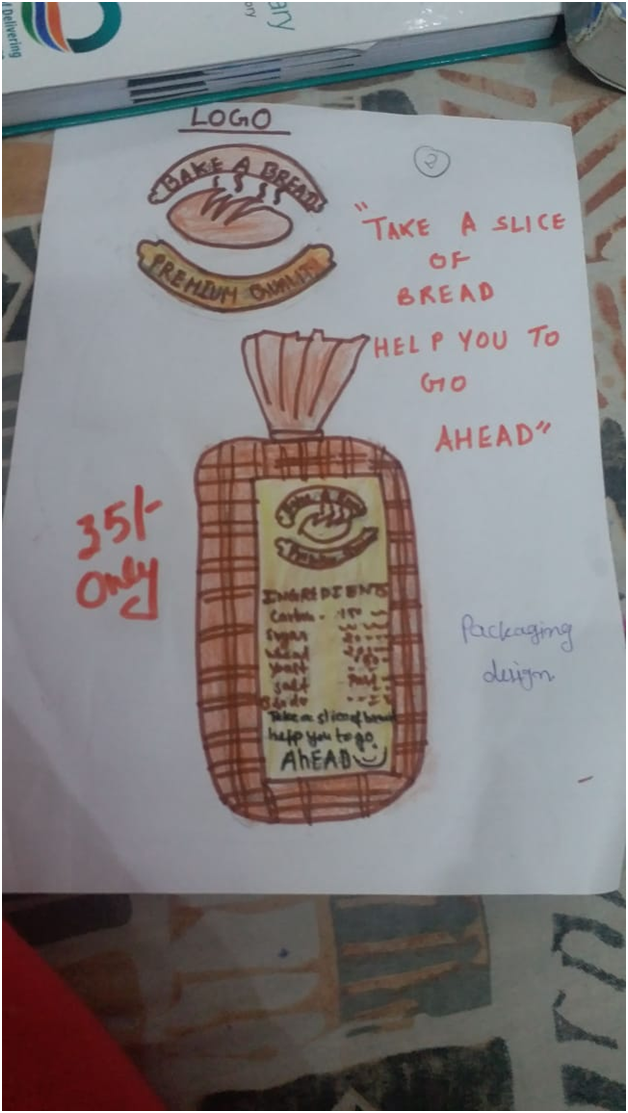 Delivering
ary
ory
LOGO
BAKE A BREAD
PREMIUM QUALITY
2
"TAKE A SLICE
OF
BREAD
HELP YOU TO
GO
AHEAD"
35/-
Only
Bake A
INGREDIENTS
Carbon - 150
Sugar
Yeast
Salt
Take a slice of bread
help you to go
AhEAD
Packaging
design